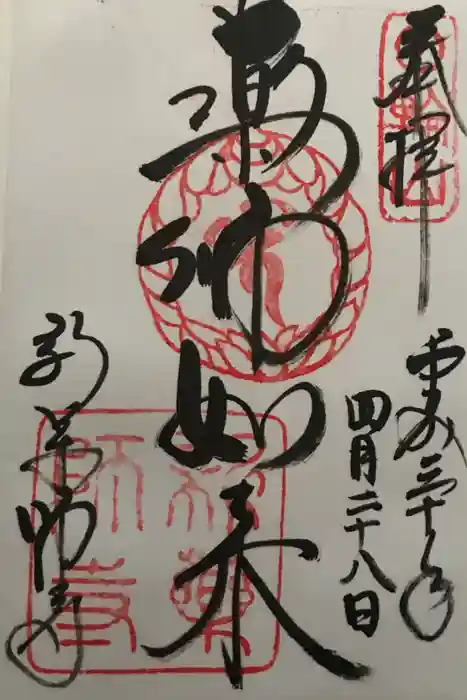 奉拝
平成三十年
四月二十八日
薬師如来
新薬師寺
日輪山
新薬師寺